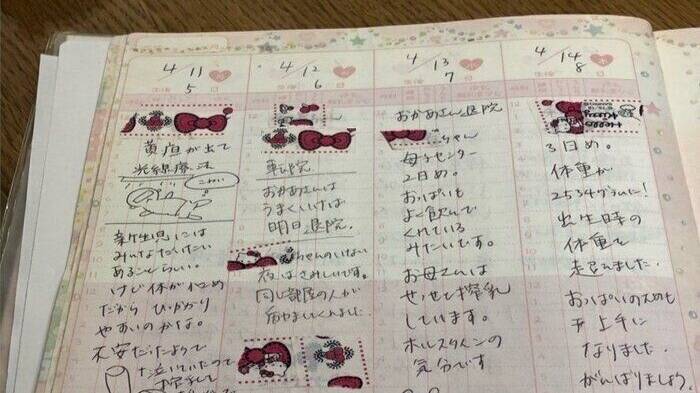 4/11
生後 5 日
黄疸が出て
光線療法
こわい
新生児には
みんなだいたい
あることらしい。
けど体が小さめ
だから ひっかかり
やすいのかな。
不安だったようで
泣いていたので
搾乳して
4/12
生後 6 日
転院
おかあさんは
うまくいけば
明日退院。
ちゃんのいない
夜はさみしいです。
同じ部屋の人が
4/13
生後 7 日
おかあさん退院
ちゃん
母子センター
2日め。
おっぱいも
よく飲んで
くれている
みたいです。
お母さんは
せっせと搾乳
しています。
ホルスタインの
気分です
4/14
生後 8 日
Hello Kitty
3日め。
体重が
2534グラムに!
出生時の
体重を
超えました。
おっぱいのむのも
上手に
なりました。
がんばりましょう。